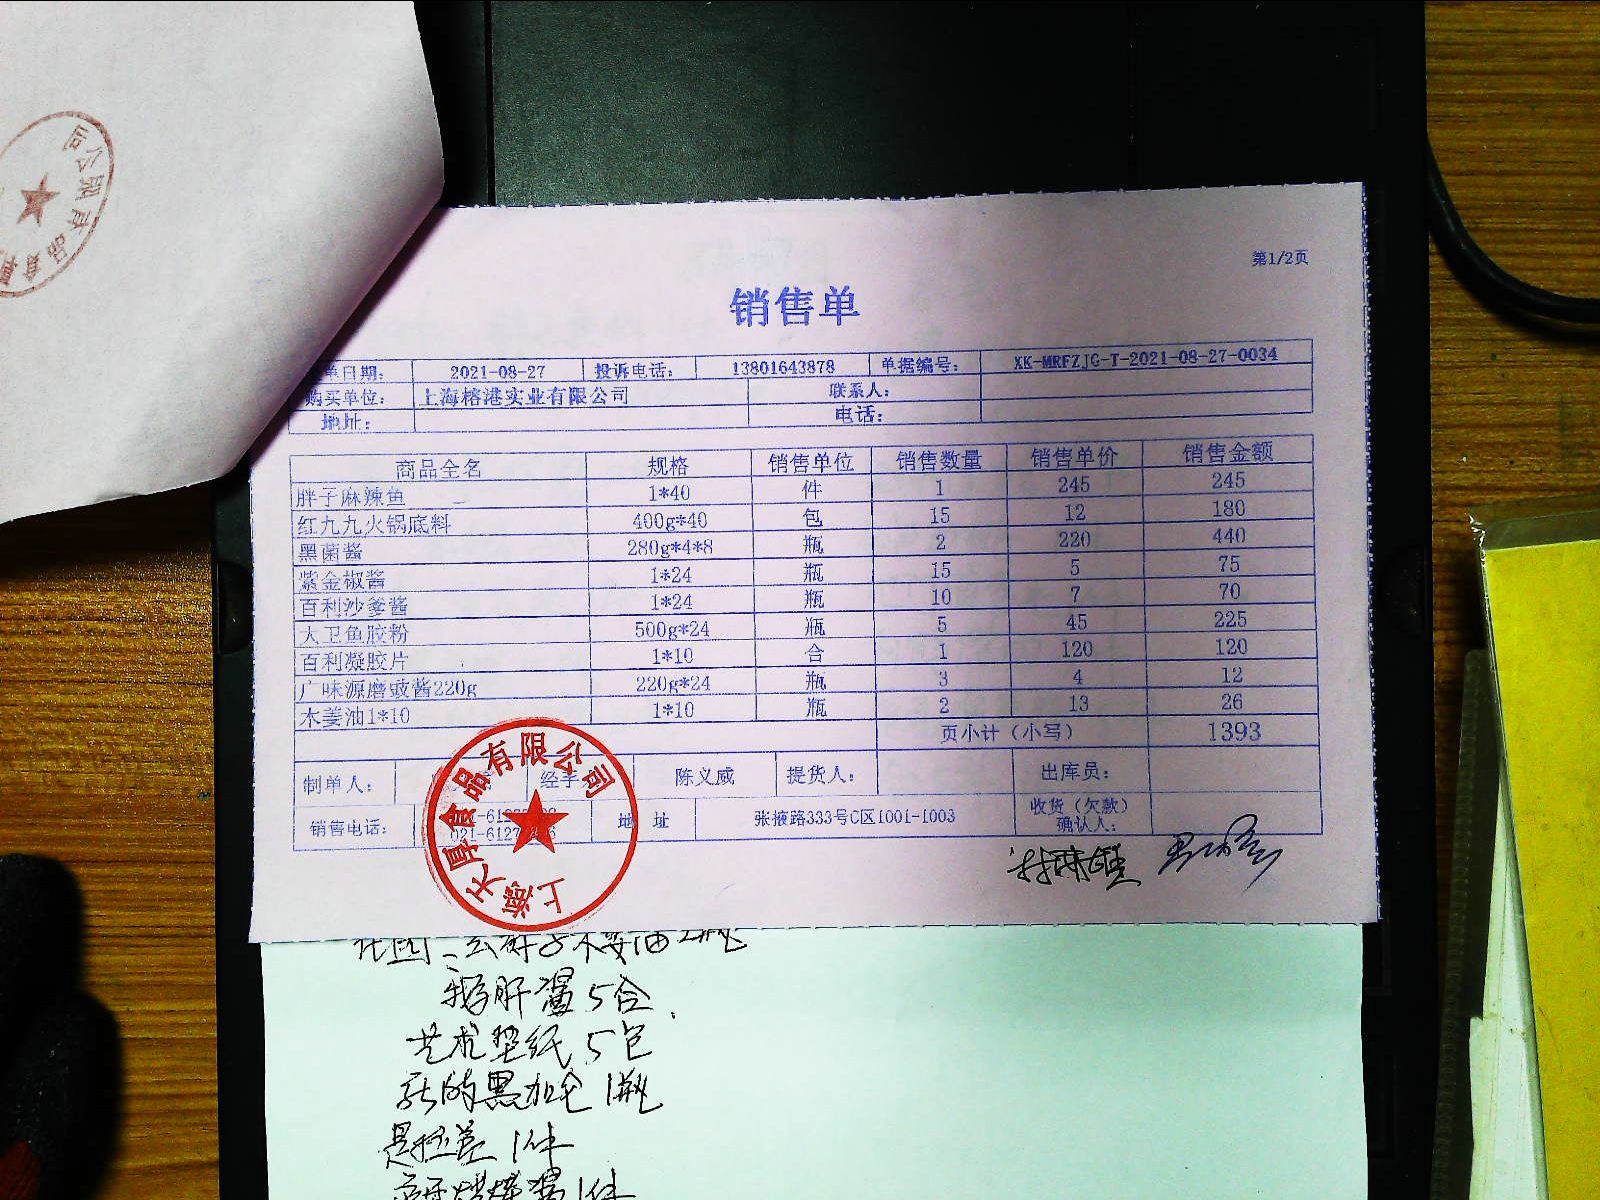 第1/2页
销售单
单日期： 2021-08-27 投诉电话： 13801643878 单据编号： XK-MRFZJG-T-2021-08-27-0034
购买单位： 上海榕港实业有限公司 联系人：
地址： 电话：
商品全名 规格 销售单位 销售数量 销售单价 销售金额
胖子麻辣鱼 1*40 件 1 245 245
红九九火锅底料 400g*40 包 15 12 180
黑菌酱 280g*4*8 瓶 2 220 440
紫金椒酱 1*24 瓶 15 5 75
百利沙爹酱 1*24 瓶 10 7 70
大卫鱼胶粉 500g*24 瓶 5 45 225
百利凝胶片 1*10 合 1 120 120
广味源磨豉酱220g 220g*24 瓶 3 4 12
木姜油1*10 1*10 瓶 2 13 26
页小计（小写） 1393
制单人： 经手 陈义威 提货人： 出库员：
销售电话： 地 址 张掖路333号C区1001-1003 收货（欠款）确认人：
上海天真食品有限公司
木姜油2瓶
鹅肝酱5合
艺术垫纸5包
黑加仑1瓶
1件
1件
食品有限公司